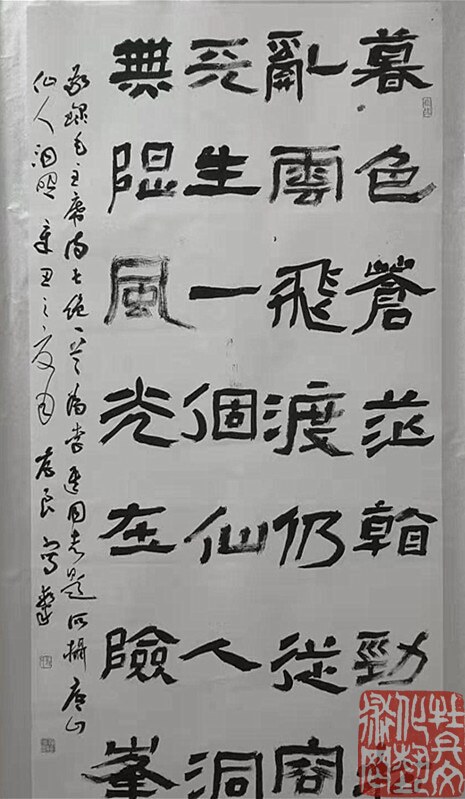 暮色蒼茫看勁松
亂雲飛渡仍從容
天生一個仙人洞
無限風光在險峯
敬錄毛主席詩七絕一首為李進同志題所攝廬山
仙人洞照 辛丑之夏月